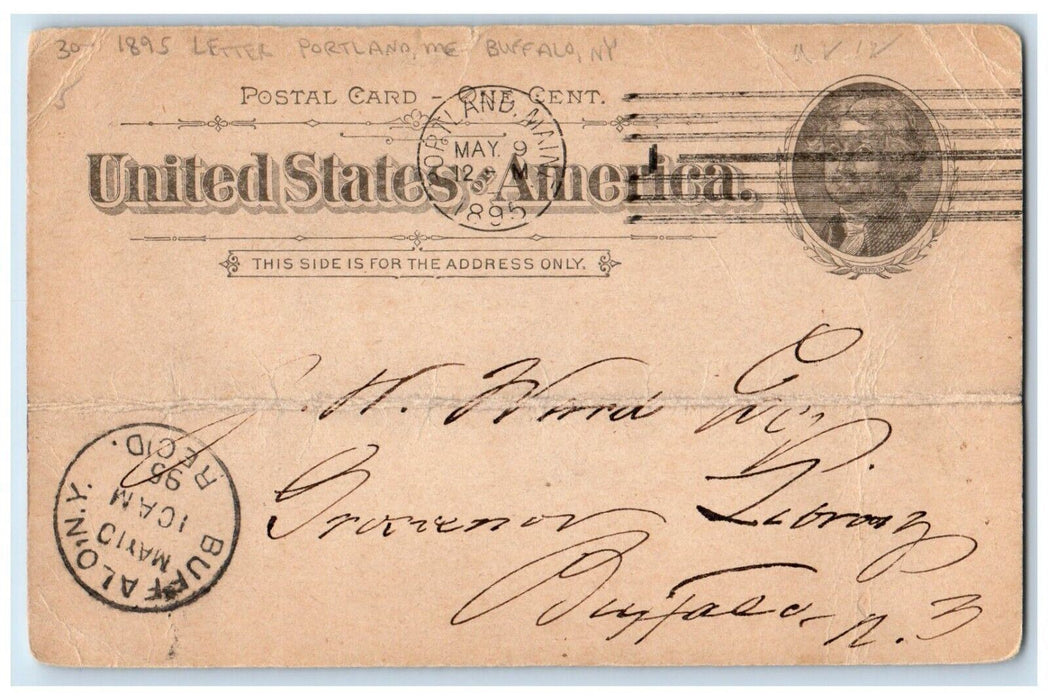 30- 1895 LETTER PORTLAND, ME BUFFALO, NY
5
POSTAL CARD – ONE CENT.
United States of America.
THIS SIDE IS FOR THE ADDRESS ONLY.
PORTLAND, MAINE
MAY. 9
12 M
1895
1
J. W. Ward Esq.
Grosvenor Library
Buffalo, N. Y
BUFFALO N.Y.
MAY 10
10 AM
95
REC'D.